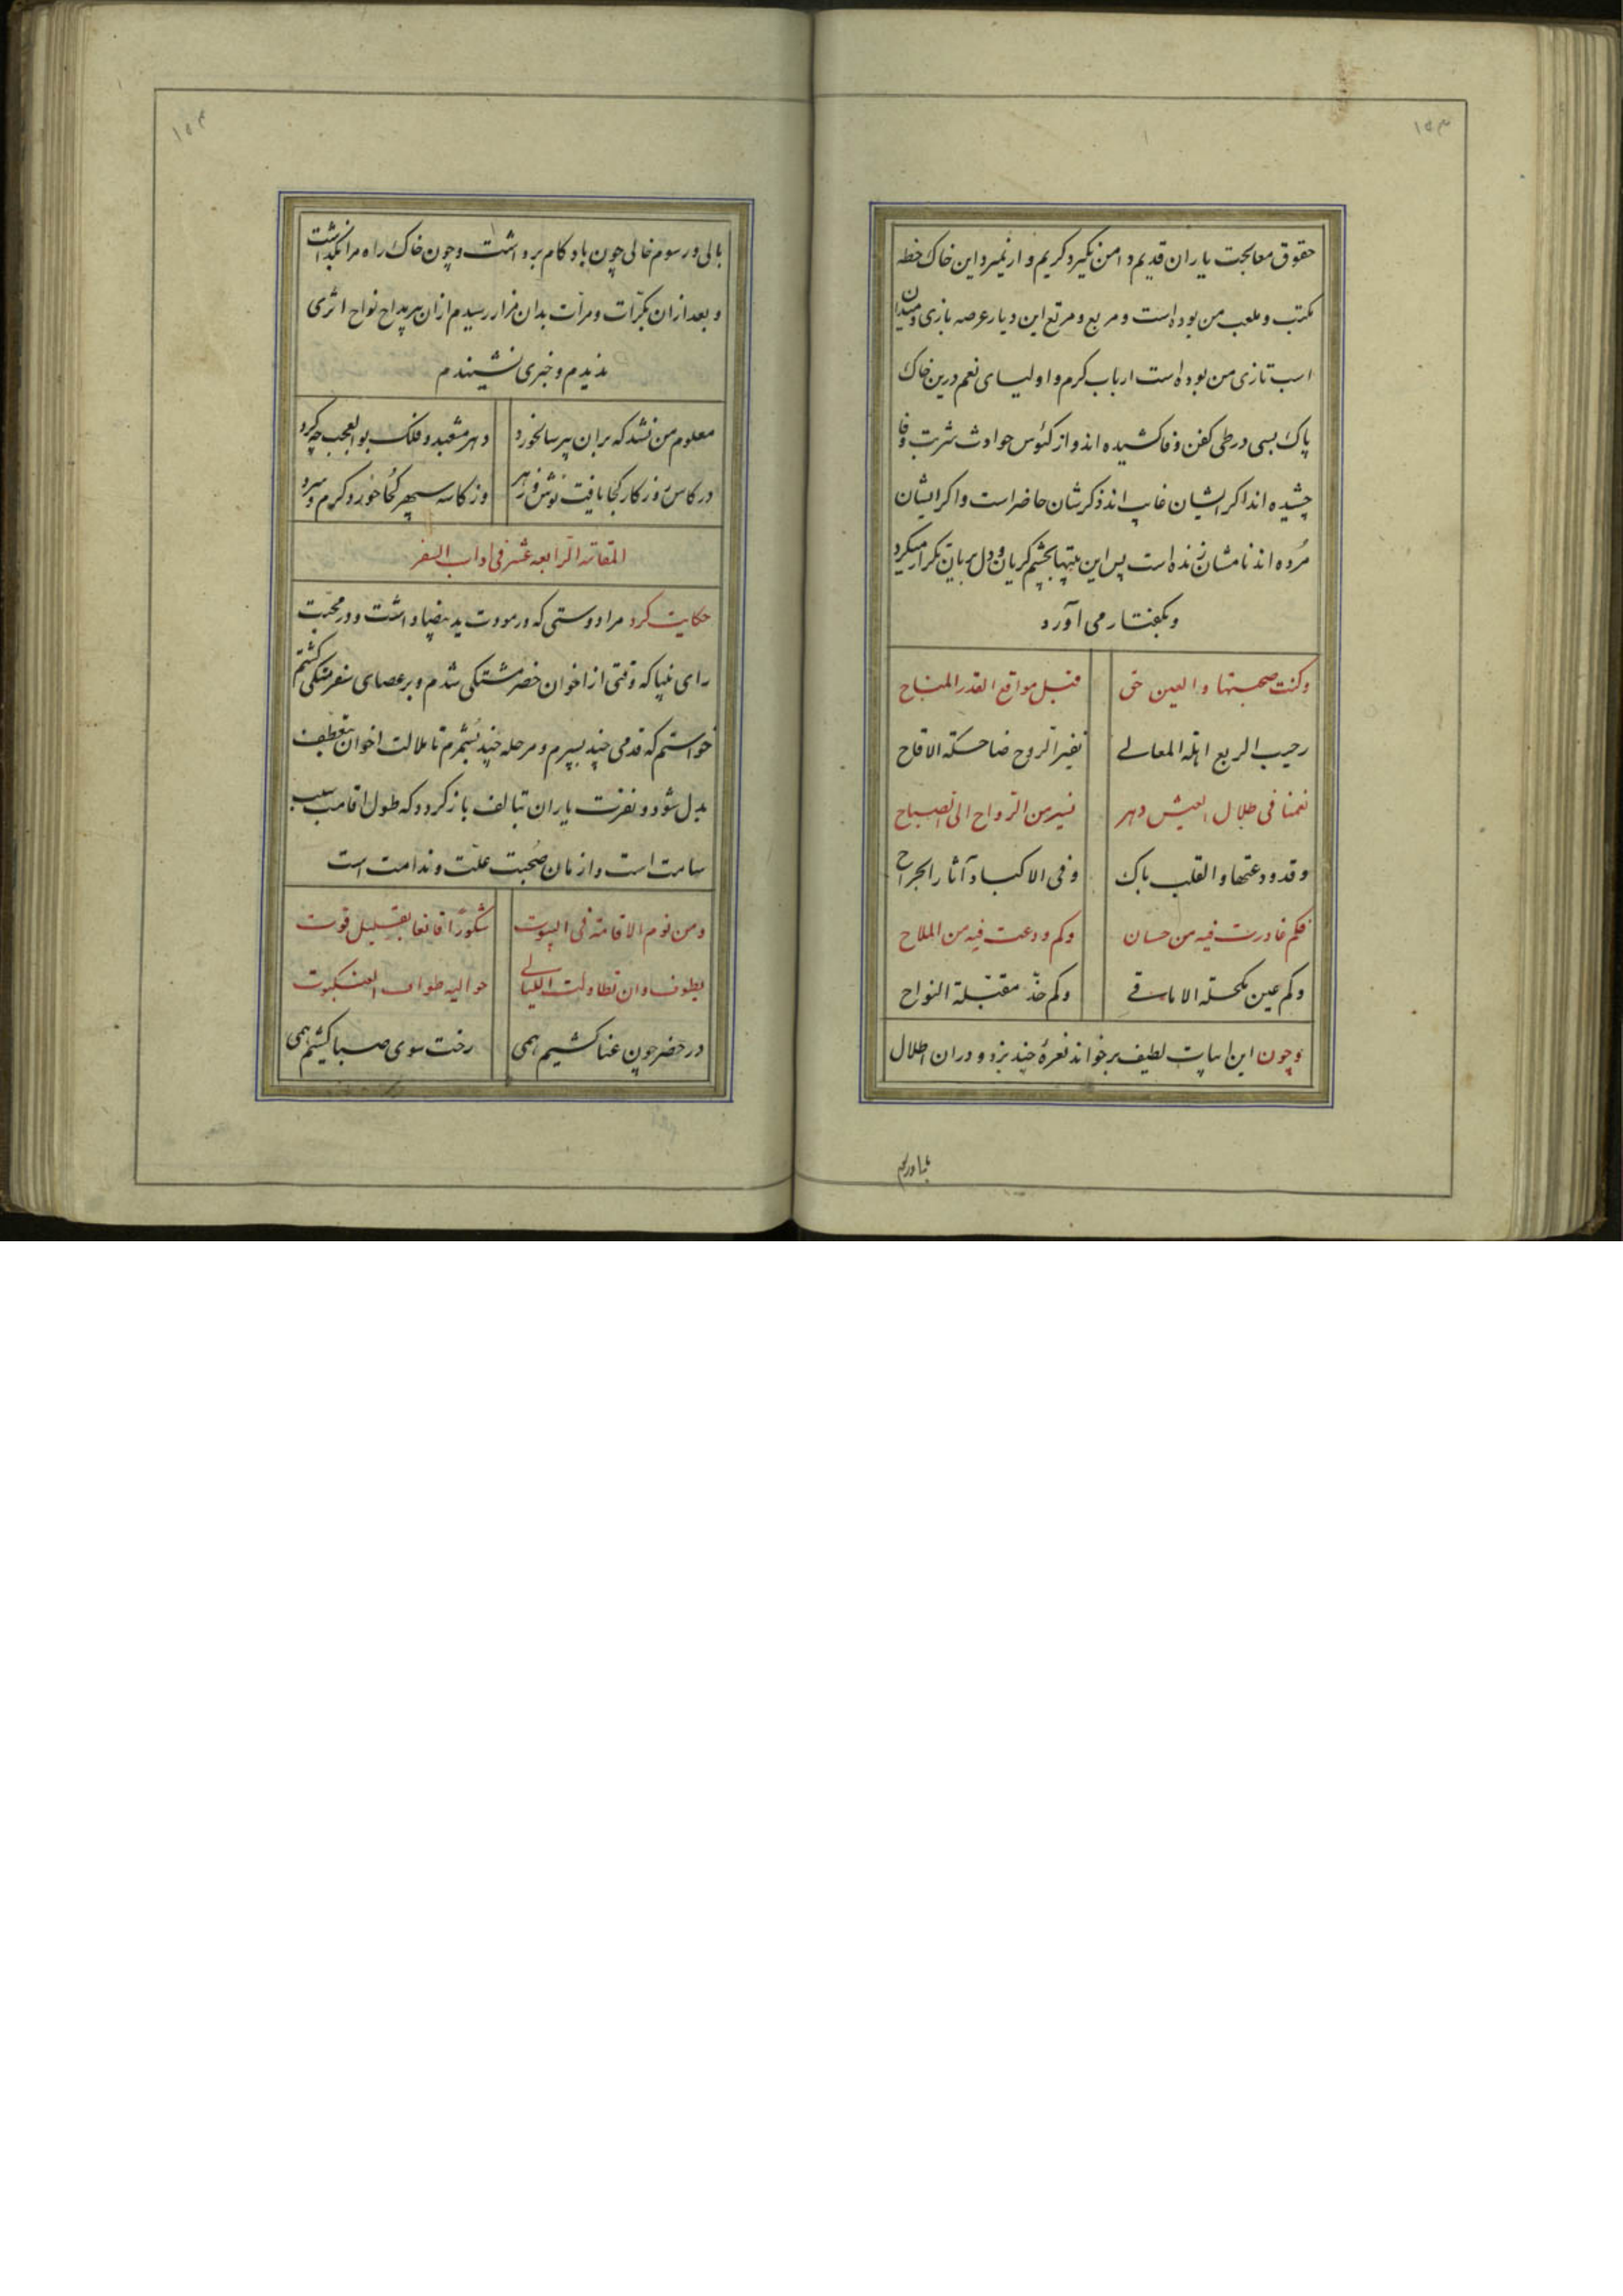 ۱۵۳
حقوق معالجت یاران قدیم دامن نگیرد کریم وار نمیرد این خاک خطه
مکتب و ملعب من بوده است و مربع و مرتع این دیار عرصه بازی و میدان
اسب تازی من بوده است ارباب کرم و اولیای نعم درین خاک
پاک بسی در طی کفن وفا کشیده اند و از کئوس حوادث شربت وفا
چشیده اند اکر ایشان غایب اند ذکرشان حاضر است و اکر ایشان
مرده اند نامشان زنده است پس این بیتها بچشم کریان و دل بریان تکرار میکرد
و بکفتار می آورد
وکنت صحبتها والعین حی قبل مواقع القدر المتاح
رحیب الربع اهلة المعالی نضیر الروح ضاحکة الاقاح
نعمنا فی ظلال العیش دهر نسیر من الرواح الی الصباح
وقد ودعتها والقلب باک وفی الاکباد آثار الجراح
فکم غادرت فیه من حسان وکم ودعت فیه من الملاح
وکم عین مکحلة الاماقی وکم خد مقبلة النواح
و چون این ابیات لطیف برخواند نعرهٔ چند بزد و دران اطلال
۱۵۴
بالی و رسوم خالی چون باد کام برداشت و چون خاک راه مرا بگذاشت
و بعد ازان بکرّات و مرّات بدان مزار رسیدم ازان پیر نواح اثری
ندیدم و خبری نشنیدم
معلوم من نشد که بران پیر سالخورد دهر مشعبد و فلک بوالعجب چه کرد
در کاس روزکار کجا یافت نوش و زهر وز کاسه سپهر کجا خورد کرم و سرد
المقامة الرابعة عشر فی اداب السفر
حکایت کرد مرا دوستی که در مودت ید بیضا داشت و در محبت
رای بینا که وقتی از اخوان حضر مشتکی شدم و بر عصای سفر متکی کشتم
خواستم که قدمی چند بسپرم و مرحله چند بشمرم تا ملالت اخوان بتعطف
بدل شود و نفرت یاران تبالف باز کردد که طول اقامت سبب
سامت است و ازمان صحبت علت و ندامت است
ومن لوم الاقامة فی البیوت شکورًا قانعا بقلیل قوت
یطوف وان تطاولت اللیالی حوالیه طواف العنکبوت
در حضر چون عنا کشیم همی رخت سوی صبا کشیم همی